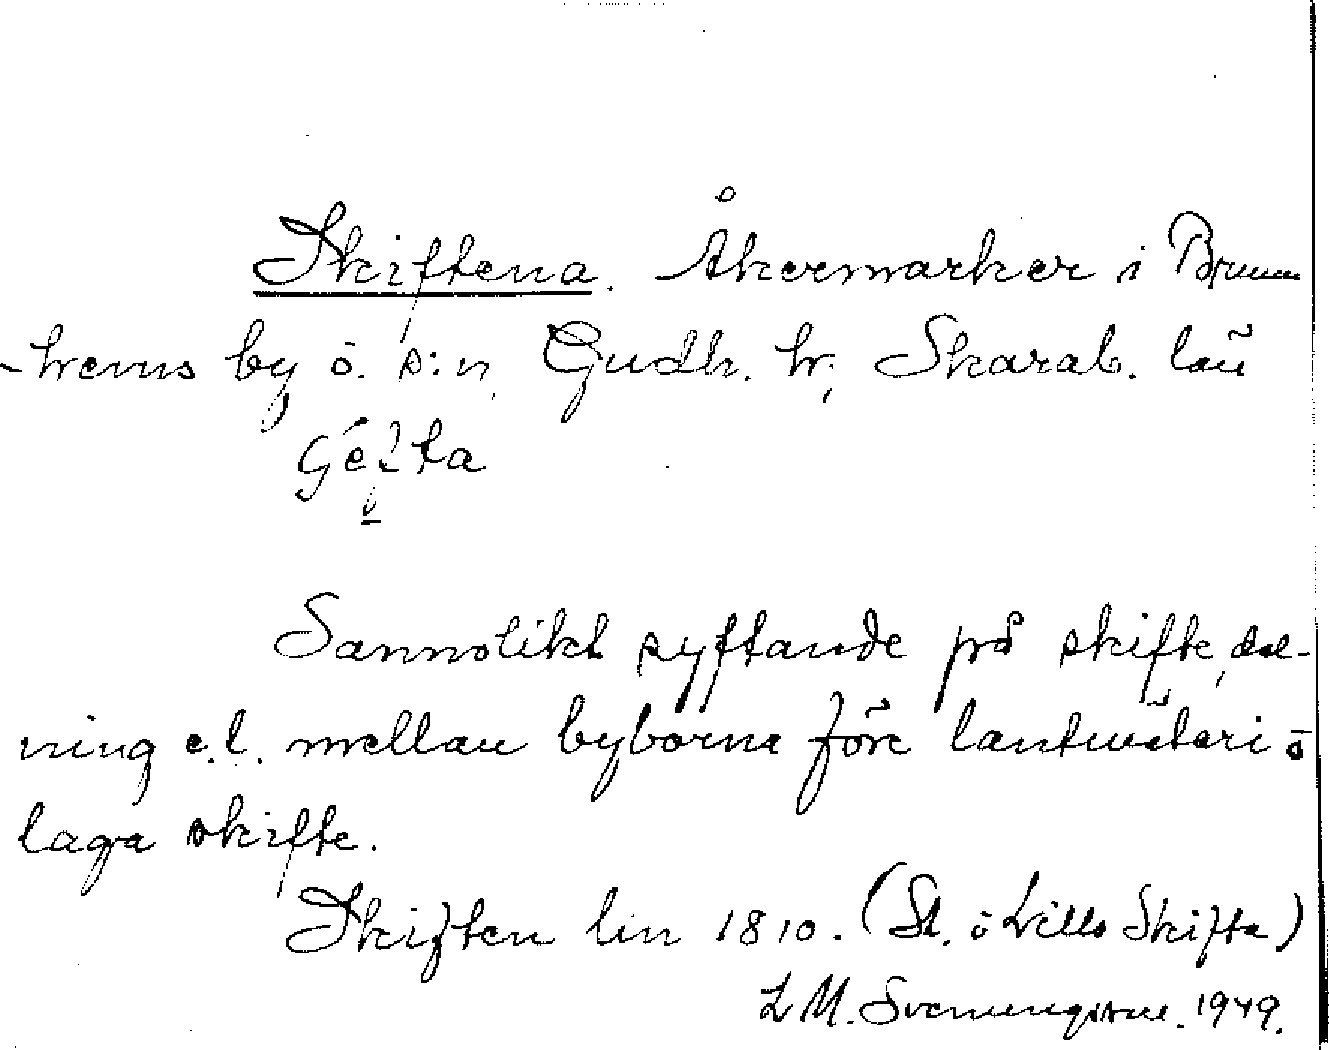 Skiftena. Åkermarker i Brunn
-hems by ö. s:n, Gudh. hr; Skarab. län
Sannolikt syftande på skifte, del-
ning e.l. mellan byborna före lantmäteri ö
laga skifte.
Skiften lm 1810. (St. ö Lilla Skifte)
L M. Svenungsson. 1949.